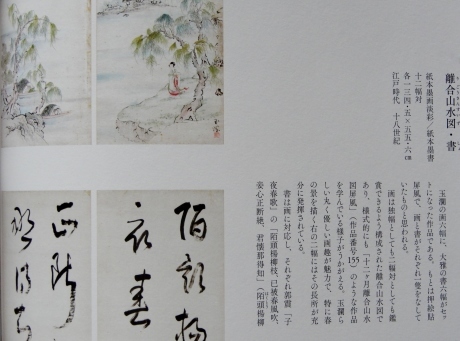 離合山水図・書
紙本墨画淡彩／紙本墨書
十二幅対
各一三四・五×五五・六㎝
江戸時代　十八世紀
玉瀾の画六幅に、大雅の書六幅がセッ
トになった作品である。もとは押絵貼
屏風で、画と書がそれぞれ一隻をなして
いたものと思われる。
画は独幅としても二幅対としても鑑
賞できるよう構成された離合山水図で
あり、様式的にも「十二ヶ月離合山水
図屏風」（作品番号155）のような作品
を学んでいる様子がうかがえる。玉瀾ら
しい丸く優しい画趣が魅力で、特に春
の景を描く右の二幅にはその長所が充
分に発揮されている。
書は画に対応し、それぞれ郭震「子
夜春歌」の「陌頭楊柳枝、已被春風吹、
妾心正断絶、君懐那得知」（陌頭楊柳
陌頭楊
衣春